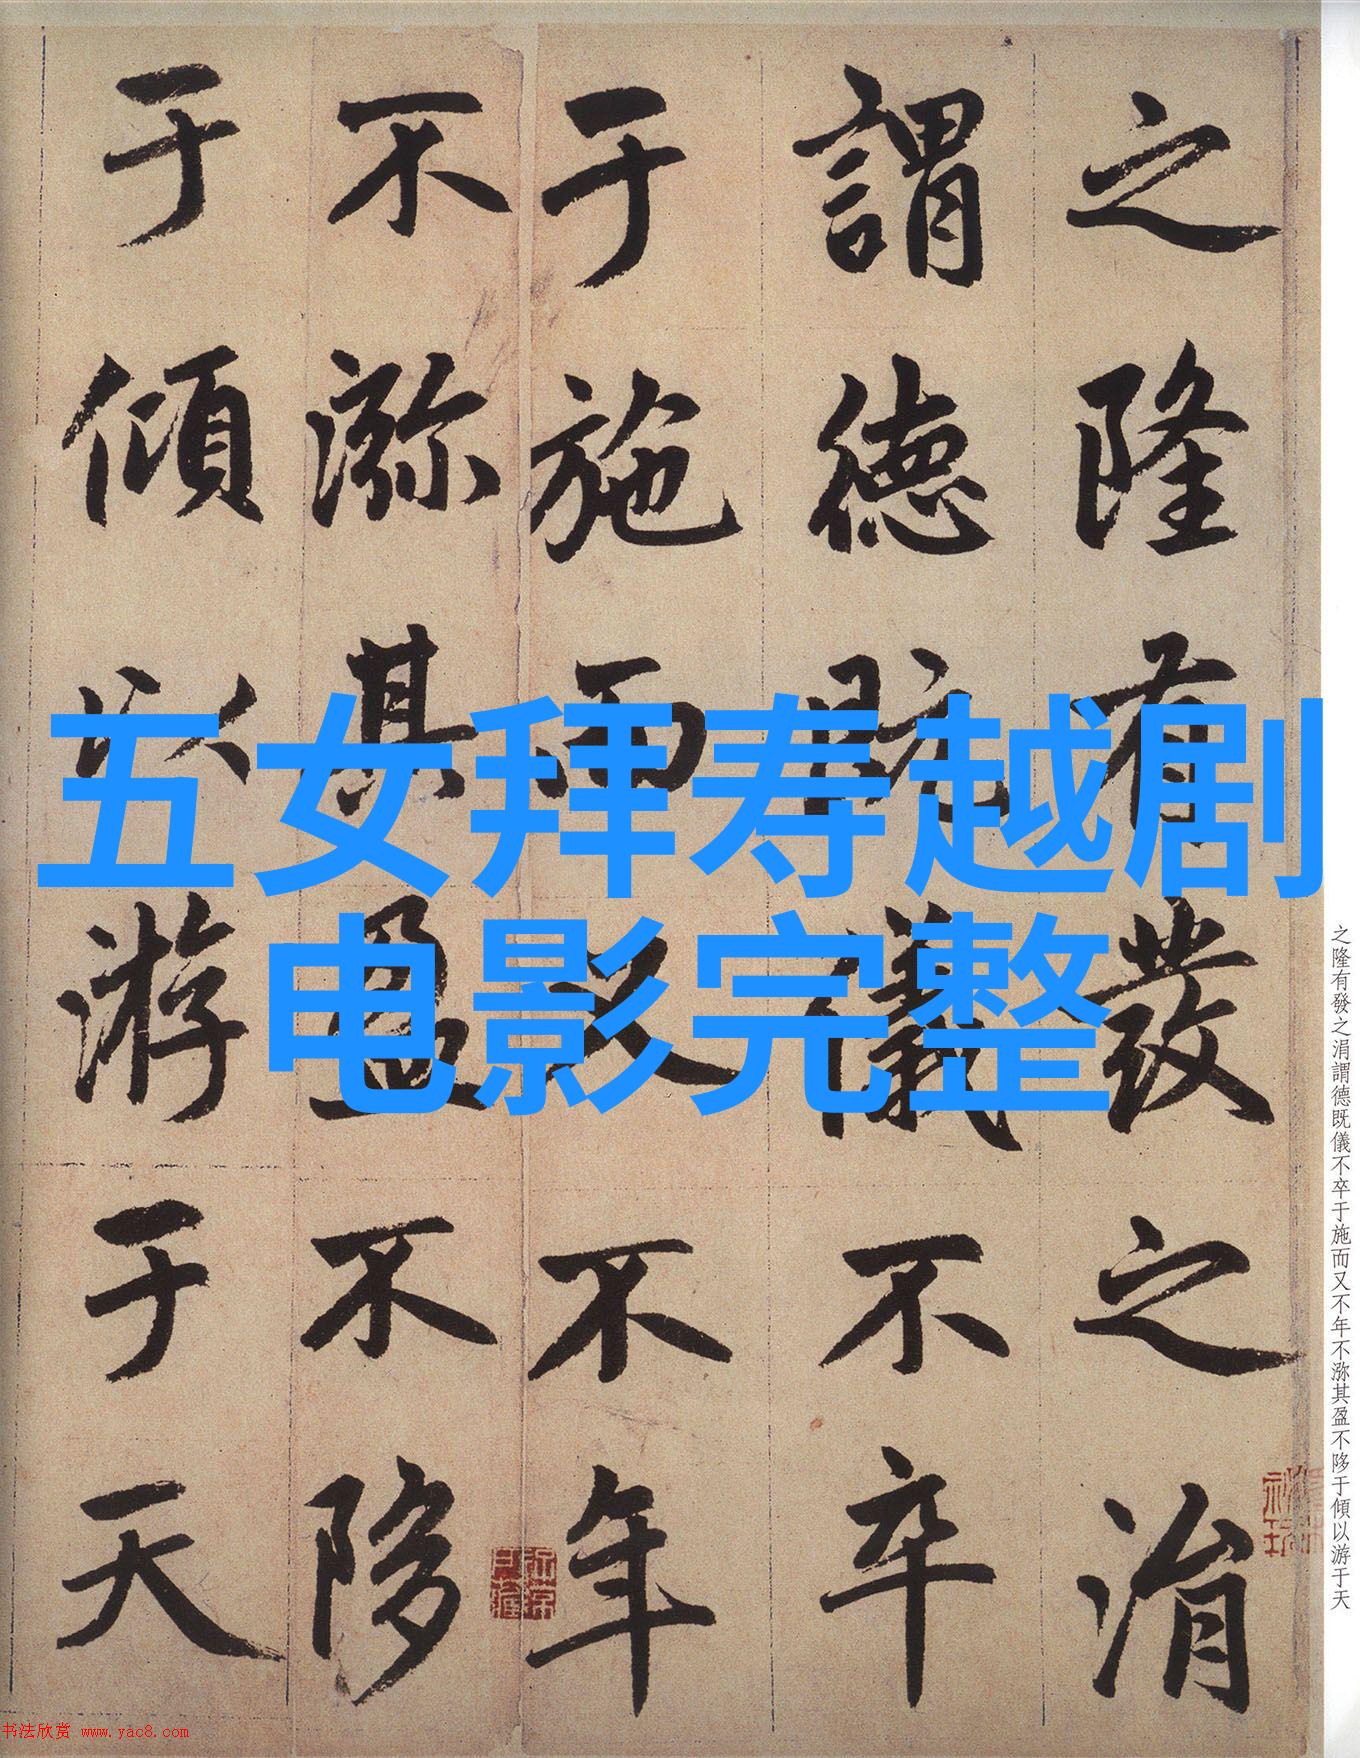 之隆有發之涓
謂德既儀不卒
于施而又不年
不沵其盈不陊
于傾以游于天
五女拜寿越剧
电影完整
之隆有發之涓謂德既儀不卒于施而又不年不沵其盈不陊于傾以游于天
书法欣赏 www.yac8.com